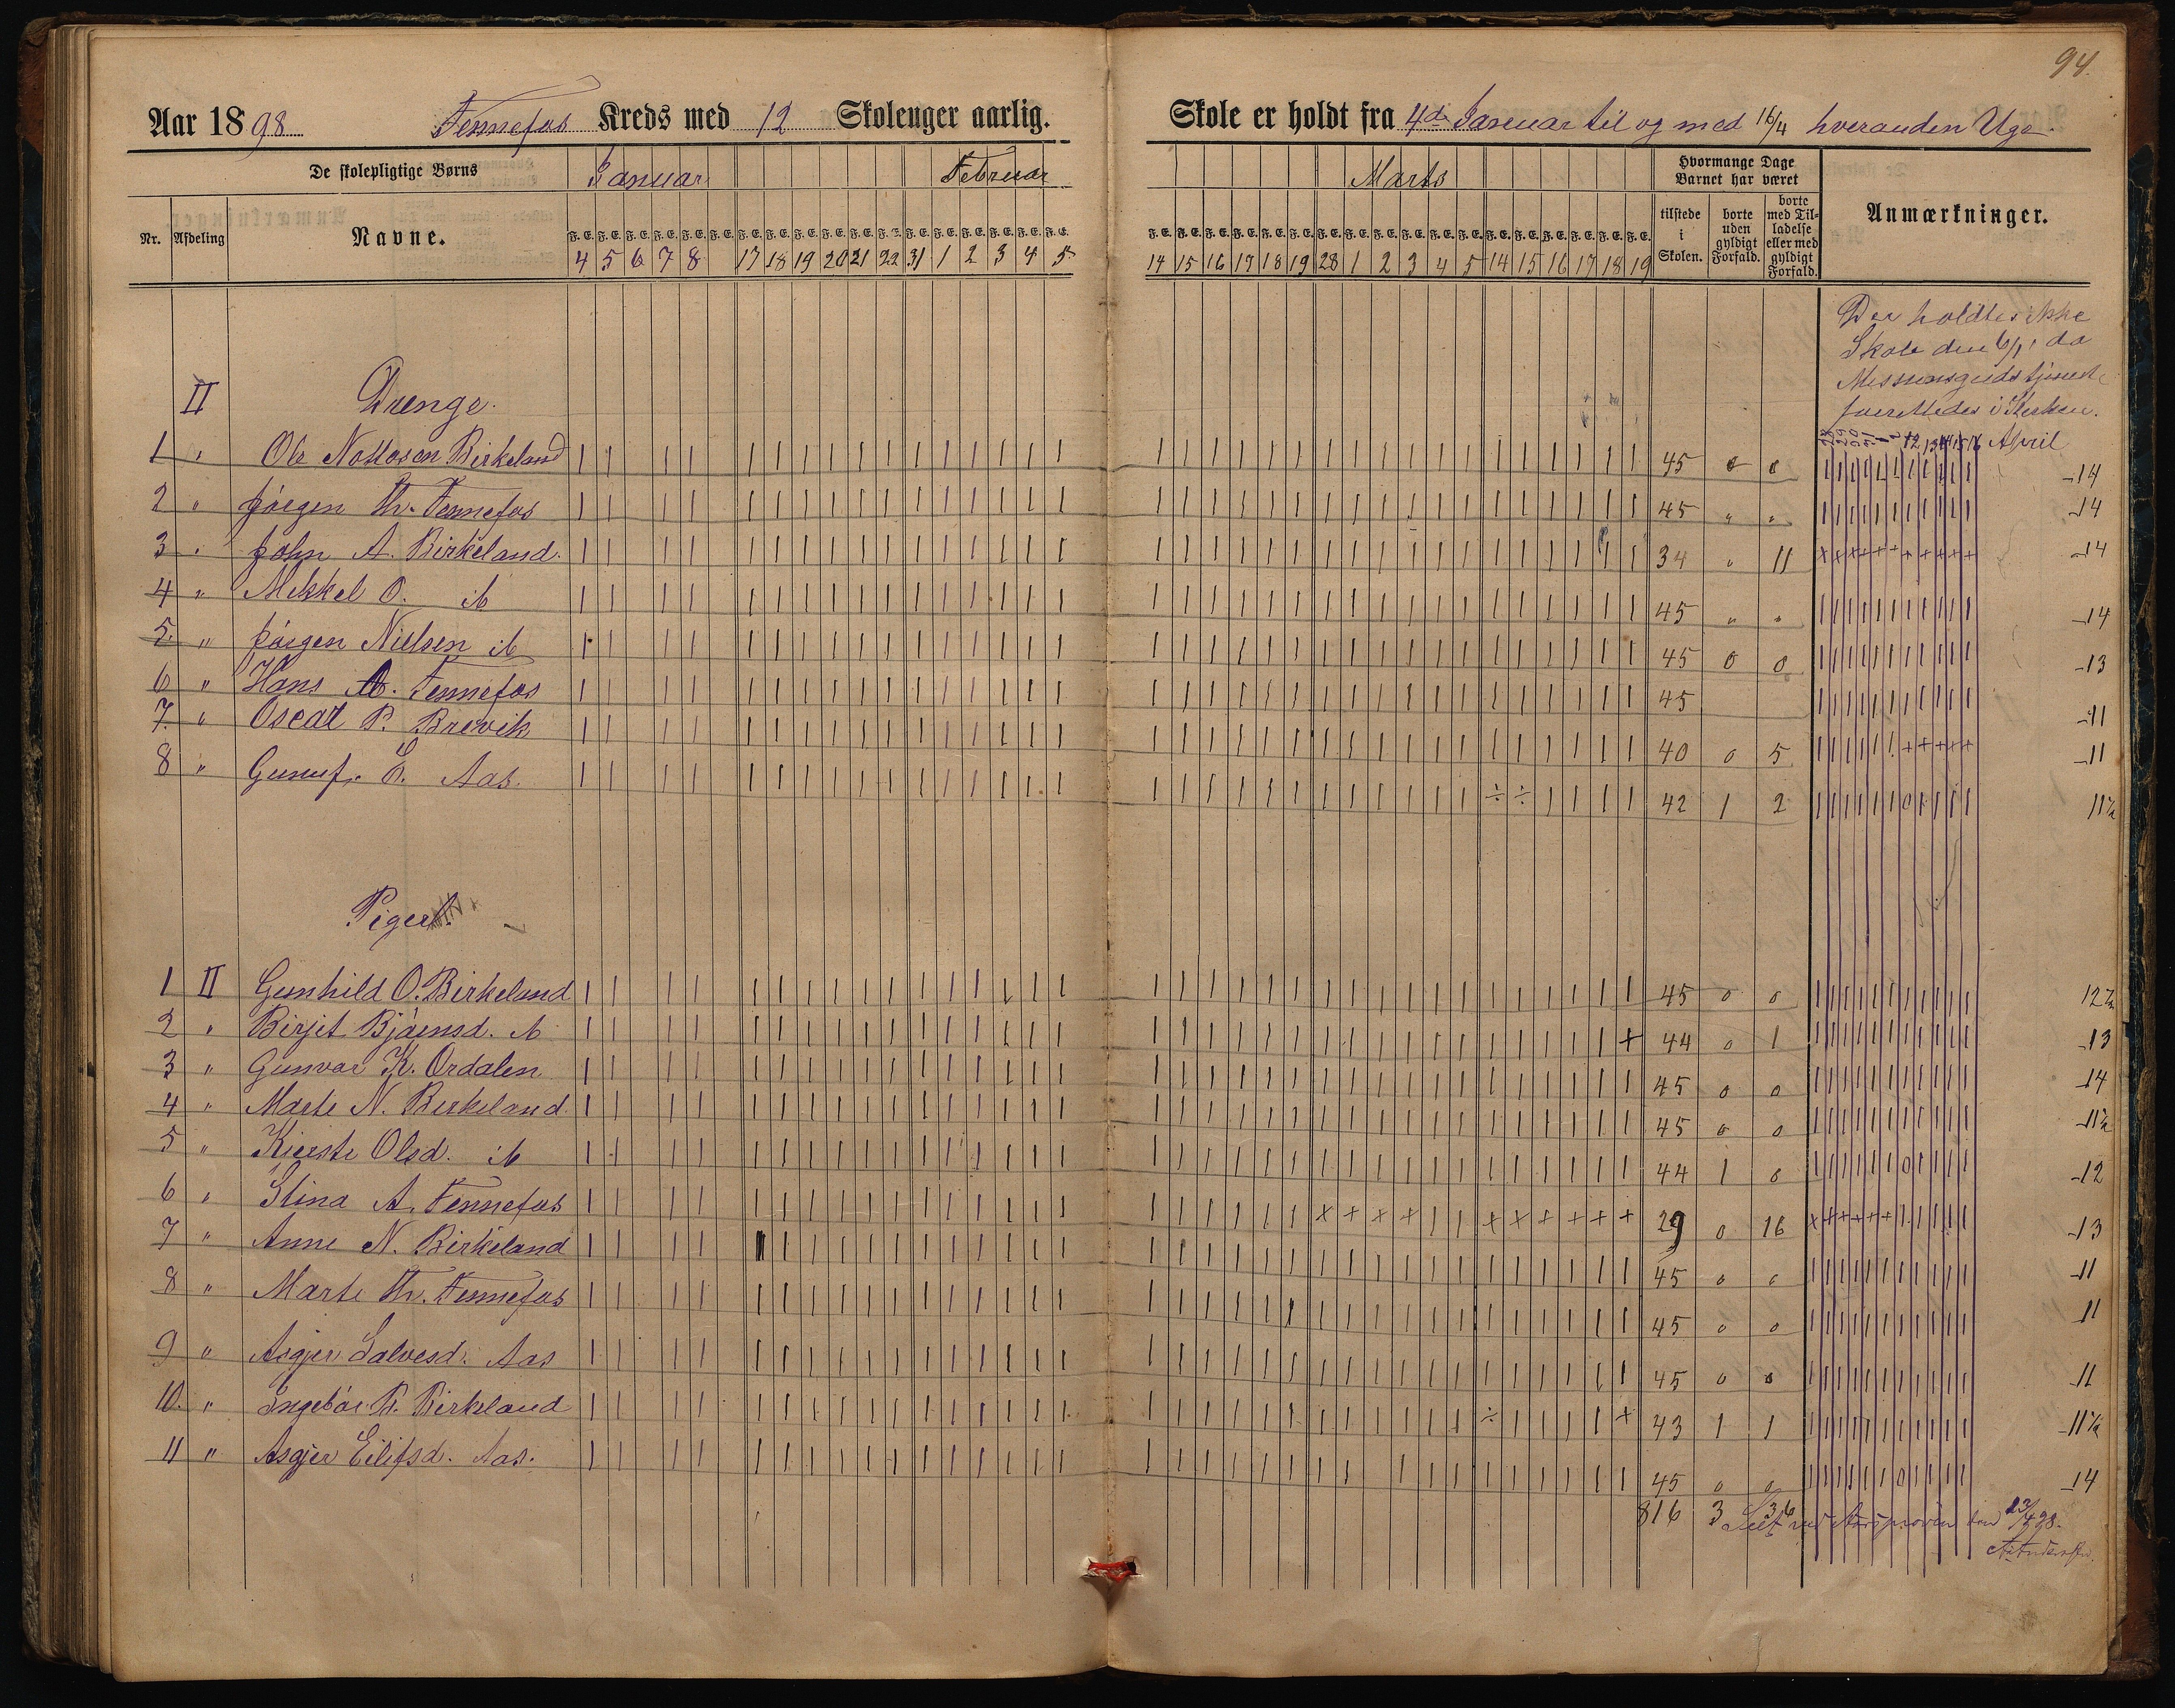 94.
Aar 1898 Fennefos Kreds med 12 Skoleuger aarlig.
Skole er holdt fra 4de Januar til og med 16/4 hveranden Uge.
De skolepligtige Børns Januar Februar
Marts Hvormange Dage Barnet har været
Nr. Afdeling Navne. F. E. F. E. F. E. F. E. F. E. F. E. F. E. F. E. F. E. F. E. F. E. F. E. F. E. F. E. F. E. F. E. F. E. F. E.
4 5 6 7 8 17 18 19 20 21 22 31 1 2 3 4 5
F. E. F. E. F. E. F. E. F. E. F. E. F. E. F. E. F. E. F. E. F. E. F. E. F. E. F. E. F. E. F. E. F. E. F. E.
14 15 16 17 18 19 28 1 2 3 4 5 14 15 16 17 18 19
tilstede i Skolen.
borte uden gyldigt Forfald.
borte med Til-
ladelse
eller med
gyldigt
Forfald.
Anmærkninger.
Der holdtes ikke
Skole den 6/1, da
Missionsgudstjeneste
forrettedes i Kirken.
12 13 14 15 16 April
II Drenge.
1 " Ole Birkeland 45 0 0 14
2 " Jørgen Th. Fennefos 45 " " 14
3 " John A. Birkeland. 34 " 11 14
4 " Mikkel O. ib 45 " " 14
5. " Jørgen Nielsen ib 45 0 0 13
6 " Hans A. Fennefos 45 11
7. " Oscar P. Brevik 40 0 5 11
8 " E. Aas. 42 1 2 11½
Piger
1 II Gunhild O. Birkeland 45 0 0 12½
2 " Birgit Bjørnsd. ib 44 0 1 13
3 " Gunvor K. Ordalen 45 0 0 14
4 " Marte N. Birkeland. 45 0 0 11½
5 " Kirste Olsd. ib 44 1 0 12
6 " Stina A. Fennefos 29 0 16 13
7 " Anne N. Birkeland 45 0 0 11
8 " Marte Th. Fennefos 45 0 0 11
9 " Asgjer Salvesd. Aas 45 0 0 11
10. " Ingebør P. Birkeland 43 1 1 11½
11 " Asgjer Eilifsd. Aas. 45 0 0 14
816 3 36
Seet ved Aarsprøven den 23/4 98.